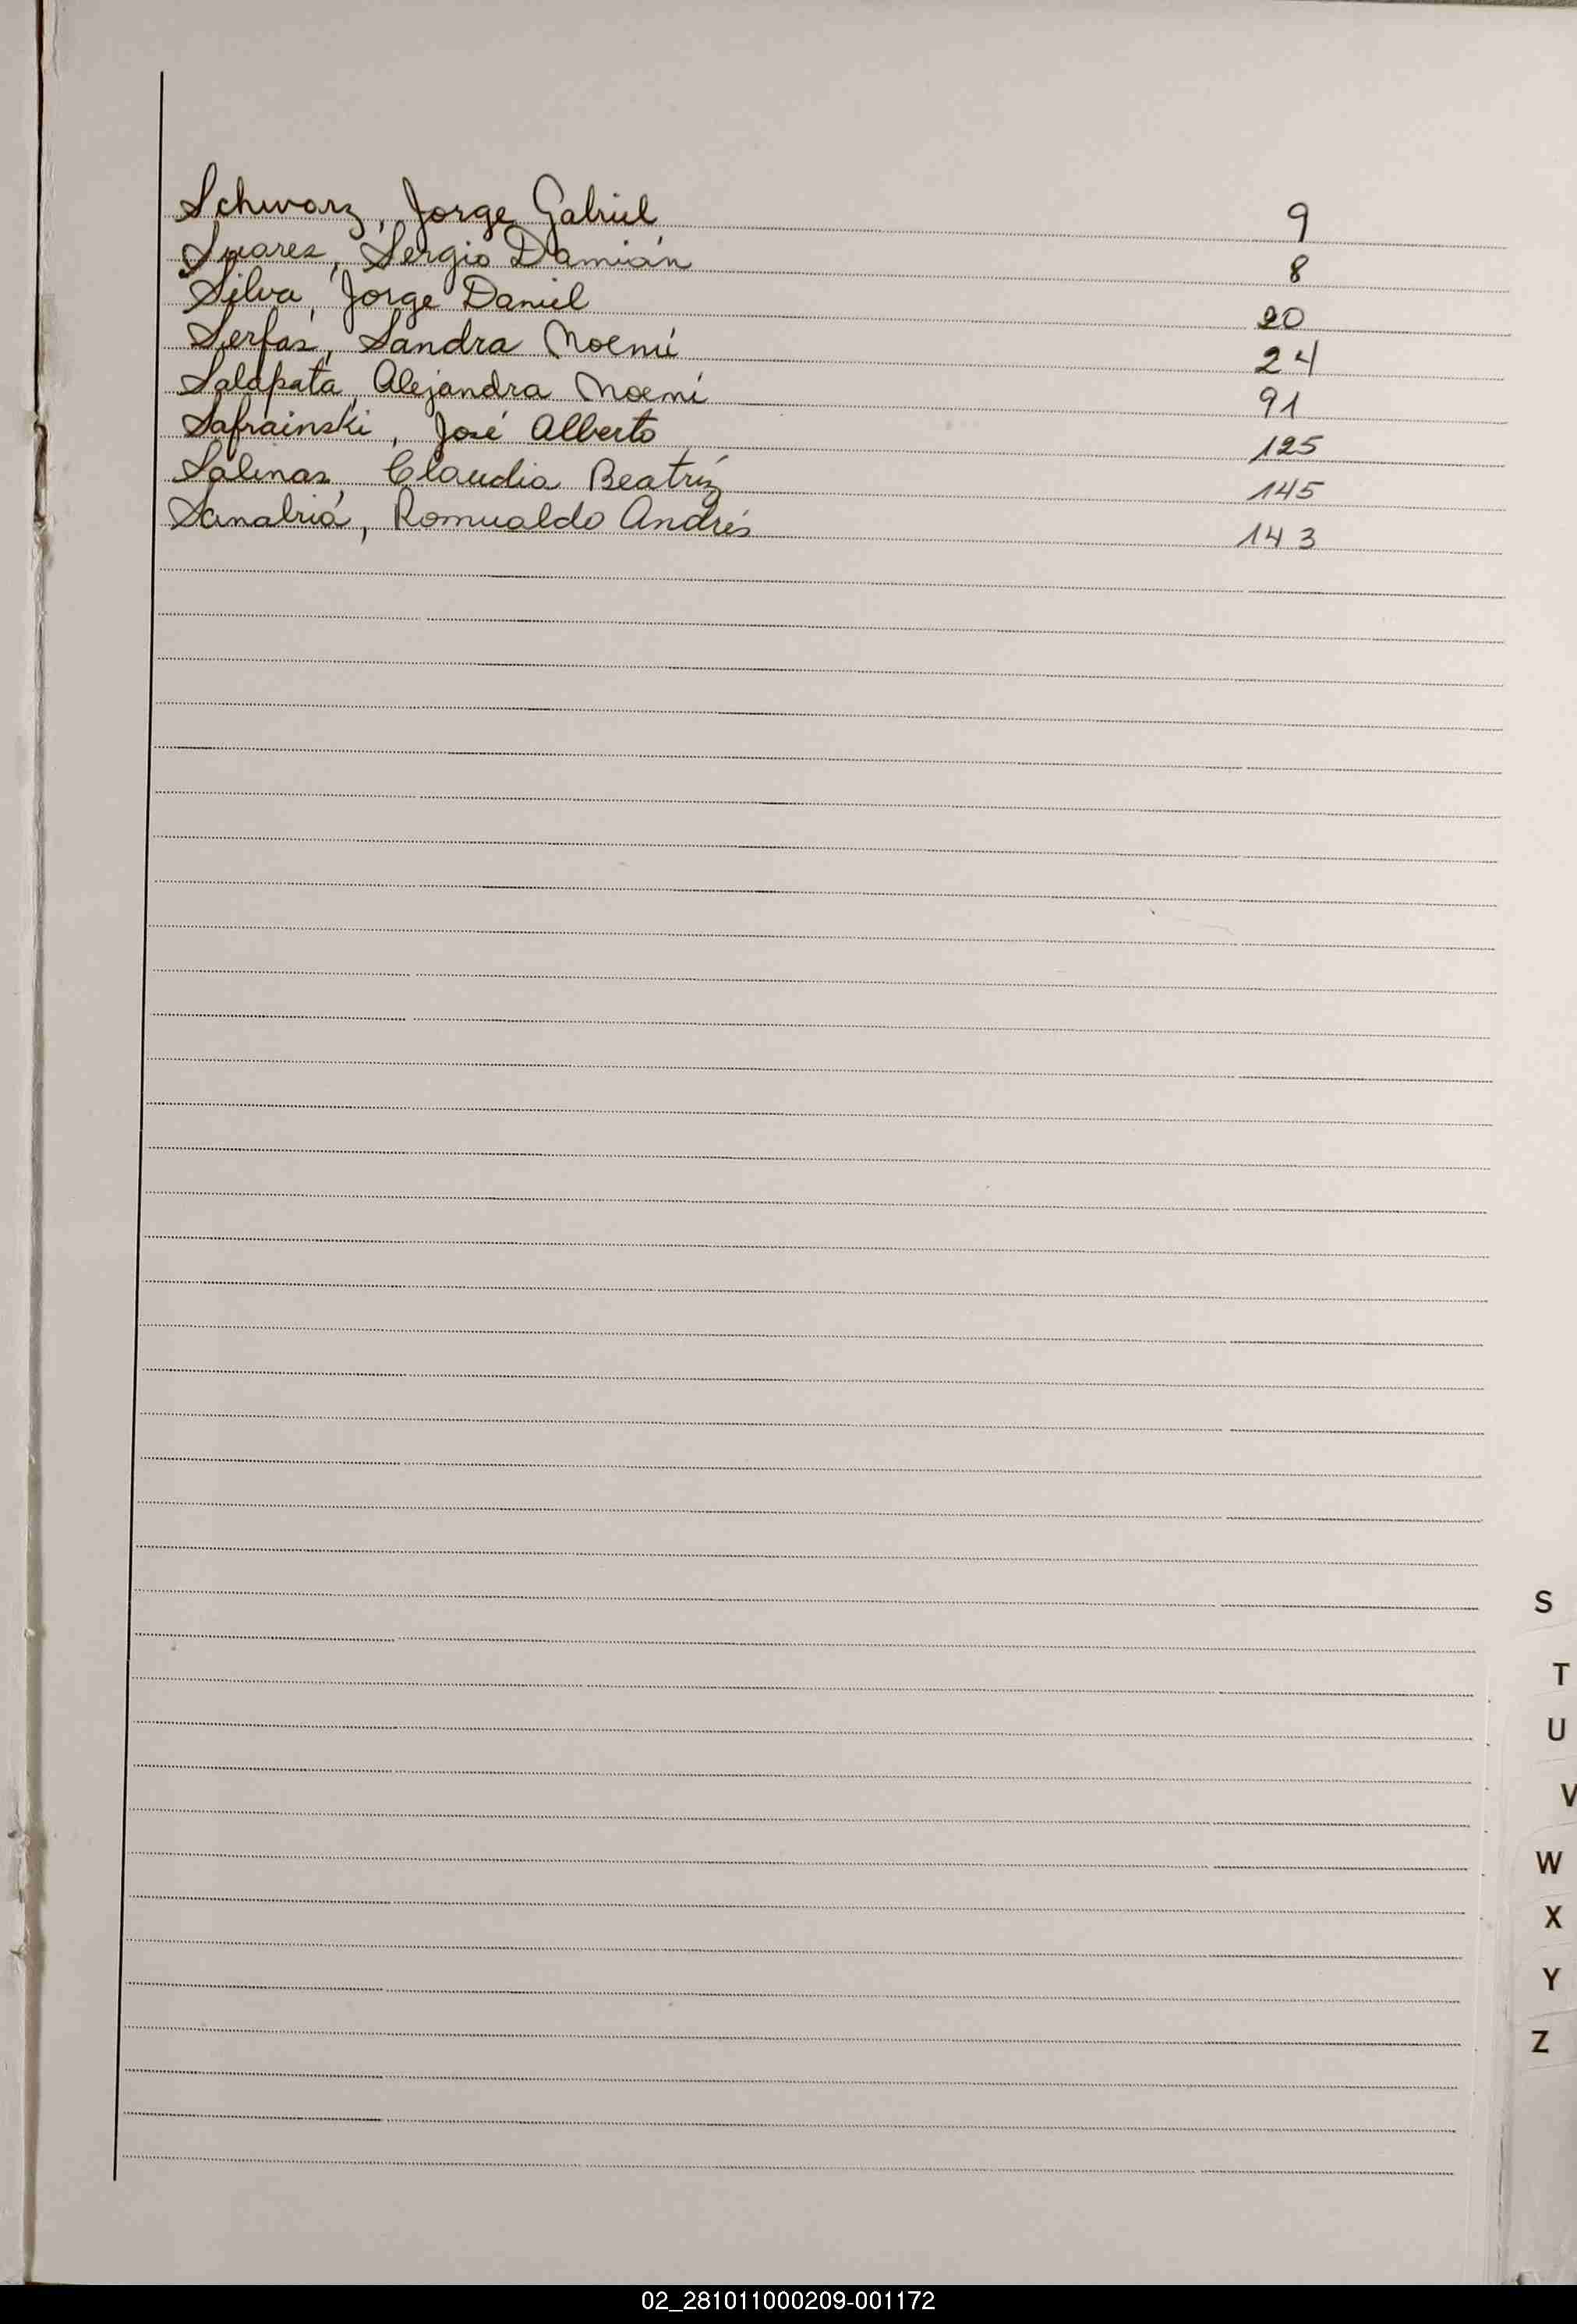 Schwarz, Jorge Gabriel 9
Suarez, Sergio Damián 8
Silva, Jorge Daniel 20
Serfas, Sandra Noemí 24
Salapata, Alejandra Noemí 91
Safrainski, José Alberto 125
Salinas, Claudia Beatríz 145
Sanabria, Romualdo Andrés 143
S
T
U
V
W
X
Y
Z
02_281011000209-001172